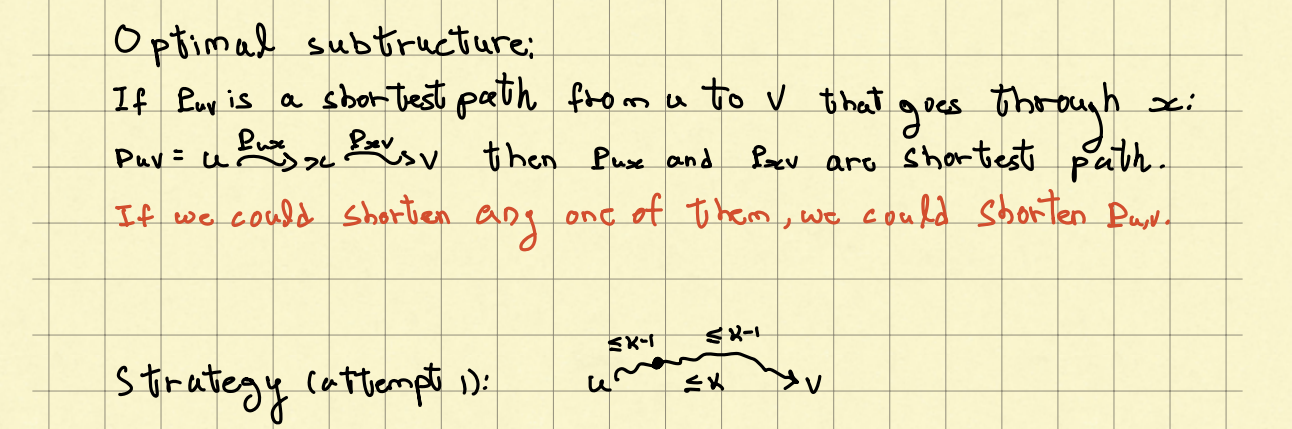 Optimal subtructure:
If Puv is a shortest path from u to v that goes through x:
Puv = u Pux x Pxv v then Pux and Pxv are shortest path.
If we could shorten any one of them, we could shorten Pu,v.
≤k-1 ≤k-1
Strategy (attempt 1): u ≤k v